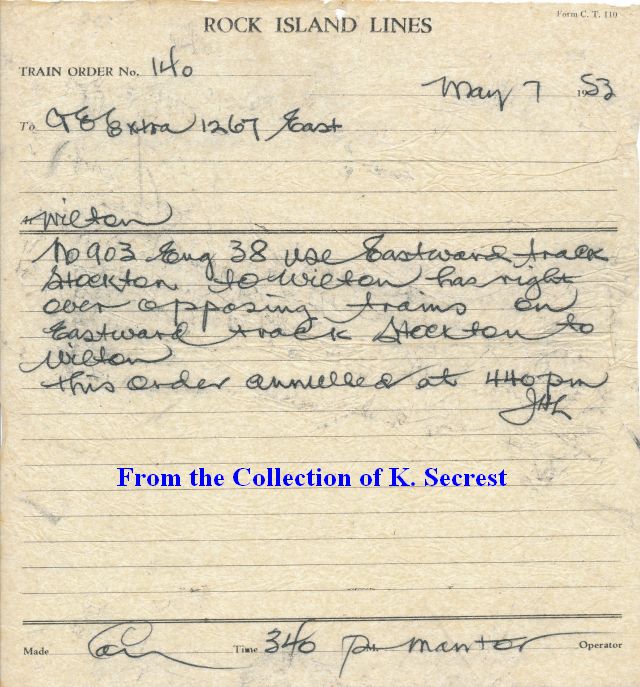 Form C. T. 110
ROCK ISLAND LINES
TRAIN ORDER No. 140
May 7 1953
To C&E Extra 1267 East
At Wilton
No 903 Eng 38 use Eastward track
Stockton to Wilton has right
over opposing trains on
Eastward track Stockton to
Wilton
this order annulled at 440 pm
JHL
From the Collection of K. Secrest
Made Com Time 340 P.M. Mantor Operator